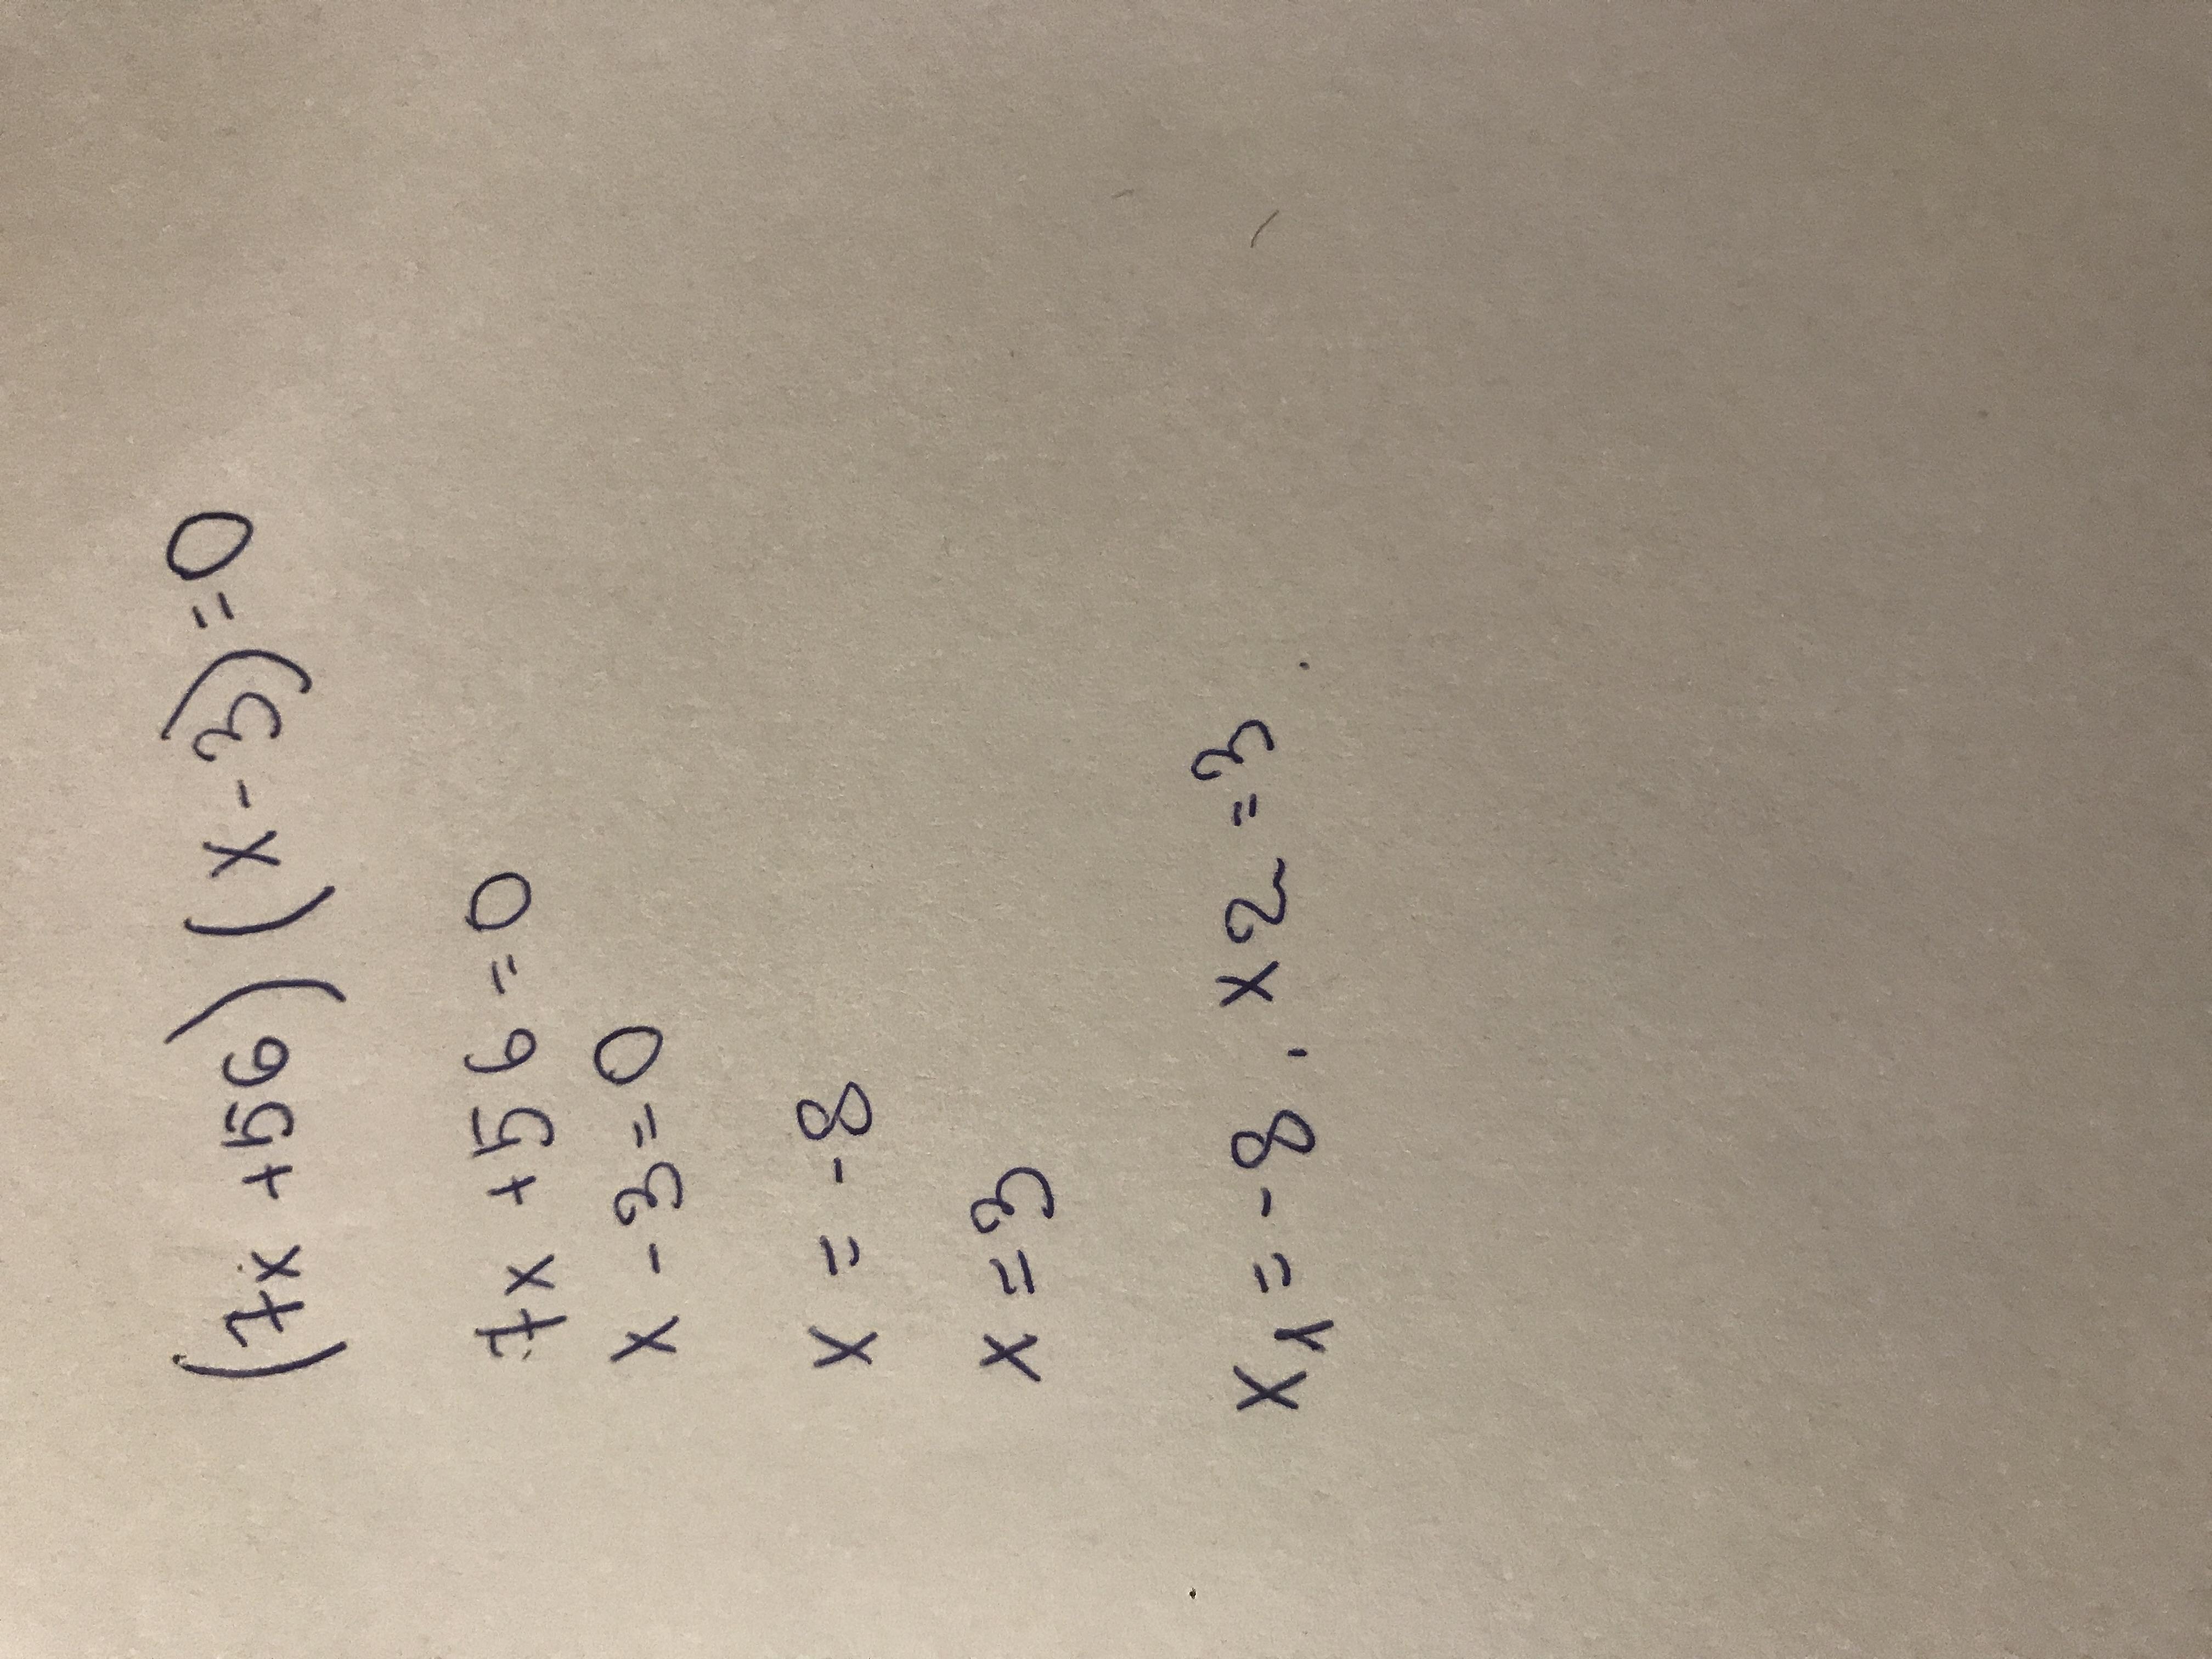 (7x +56) (x-3)=0
7x +56=0
x-3=0
x = -8
x =3
x₁= -8. x2 =3